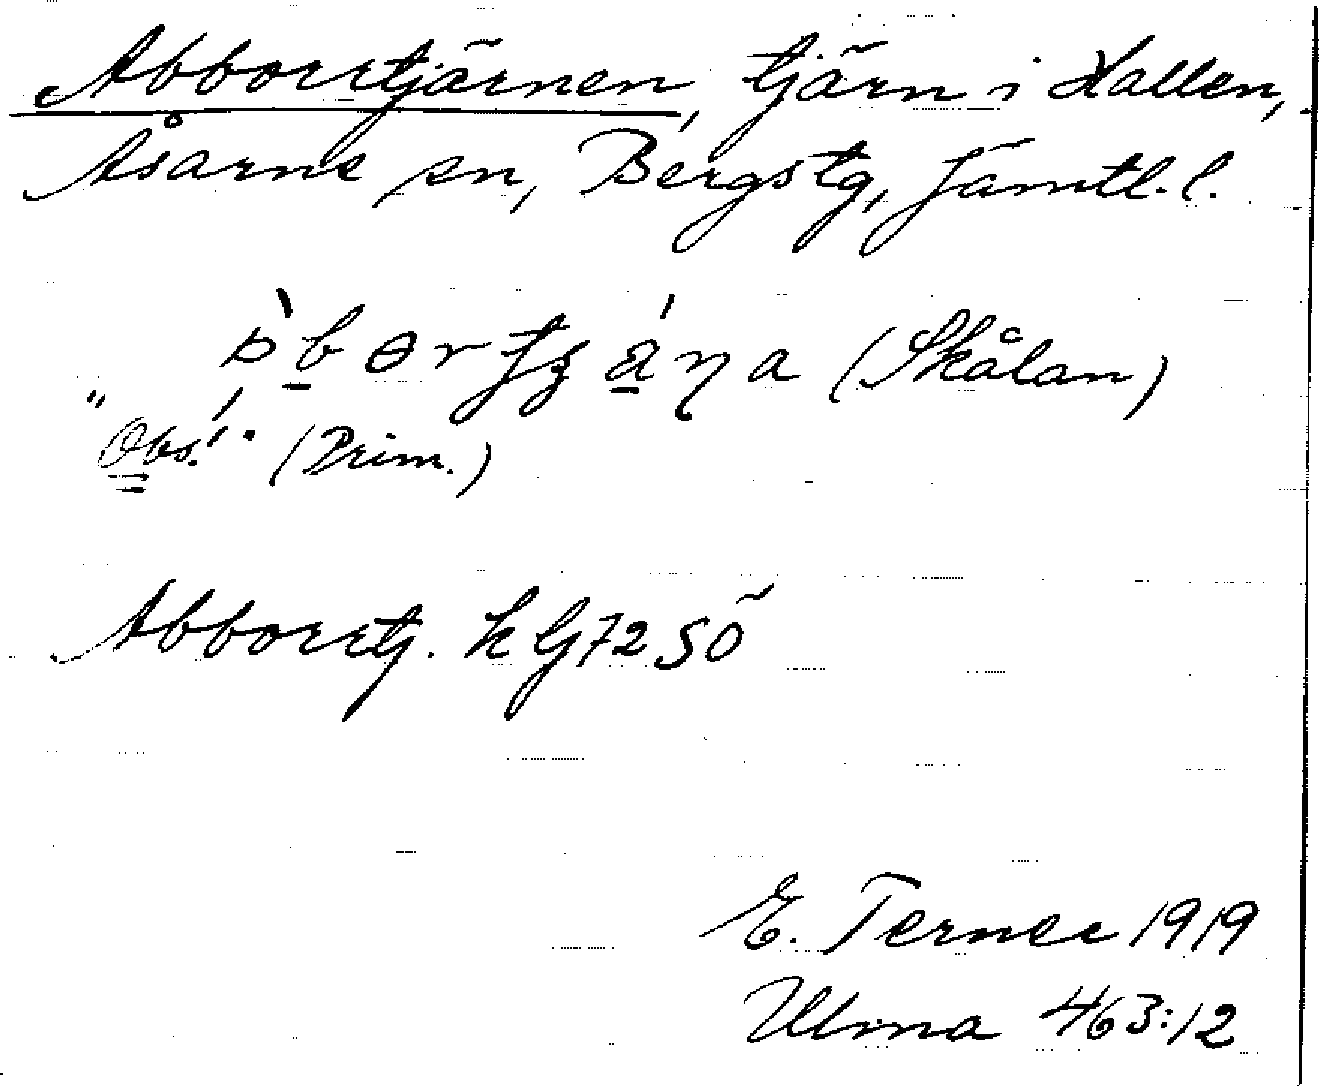 Abborrtjärnen, tjärn i Hallen,
Åsarne sn, Bergs tg, Jämtl. l.
(Skålan)
"Obs!" (Prim.)
Abborrtj. k Gj 72 SÖ
E. Terner 1919
Ulma 463:12